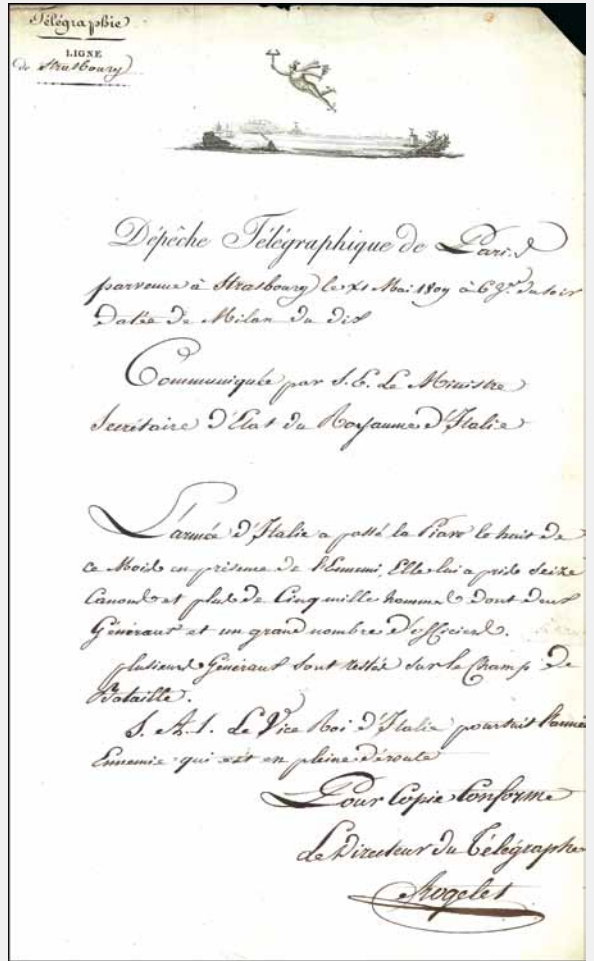 Télégraphie
LIGNE
de Strasbourg
Dépêche Télégraphique de Paris
parvenue à Strasbourg le xi Mai 1809 à 6 h. du soir
Datée de Milan du dix
Communiquée par S. E. Le Ministre
Secrétaire d'Etat du Royaume d'Italie
L'armée d'Italie a passé la Piave le huit de
ce Mois en présence de l'Ennemi, Elle lui a pris seize
Canons et plus de Cinq mille hommes dont deux
Généraux et un grand nombre d'officiers.
plusieurs Généraux sont restés sur le Champ de
Bataille.
S. A. I. Le Vice Roi d'Italie poursuit l'armée
Ennemie qui est en pleine déroute
Pour Copie Conforme
Le Directeur du Télégraphe
Rogelet